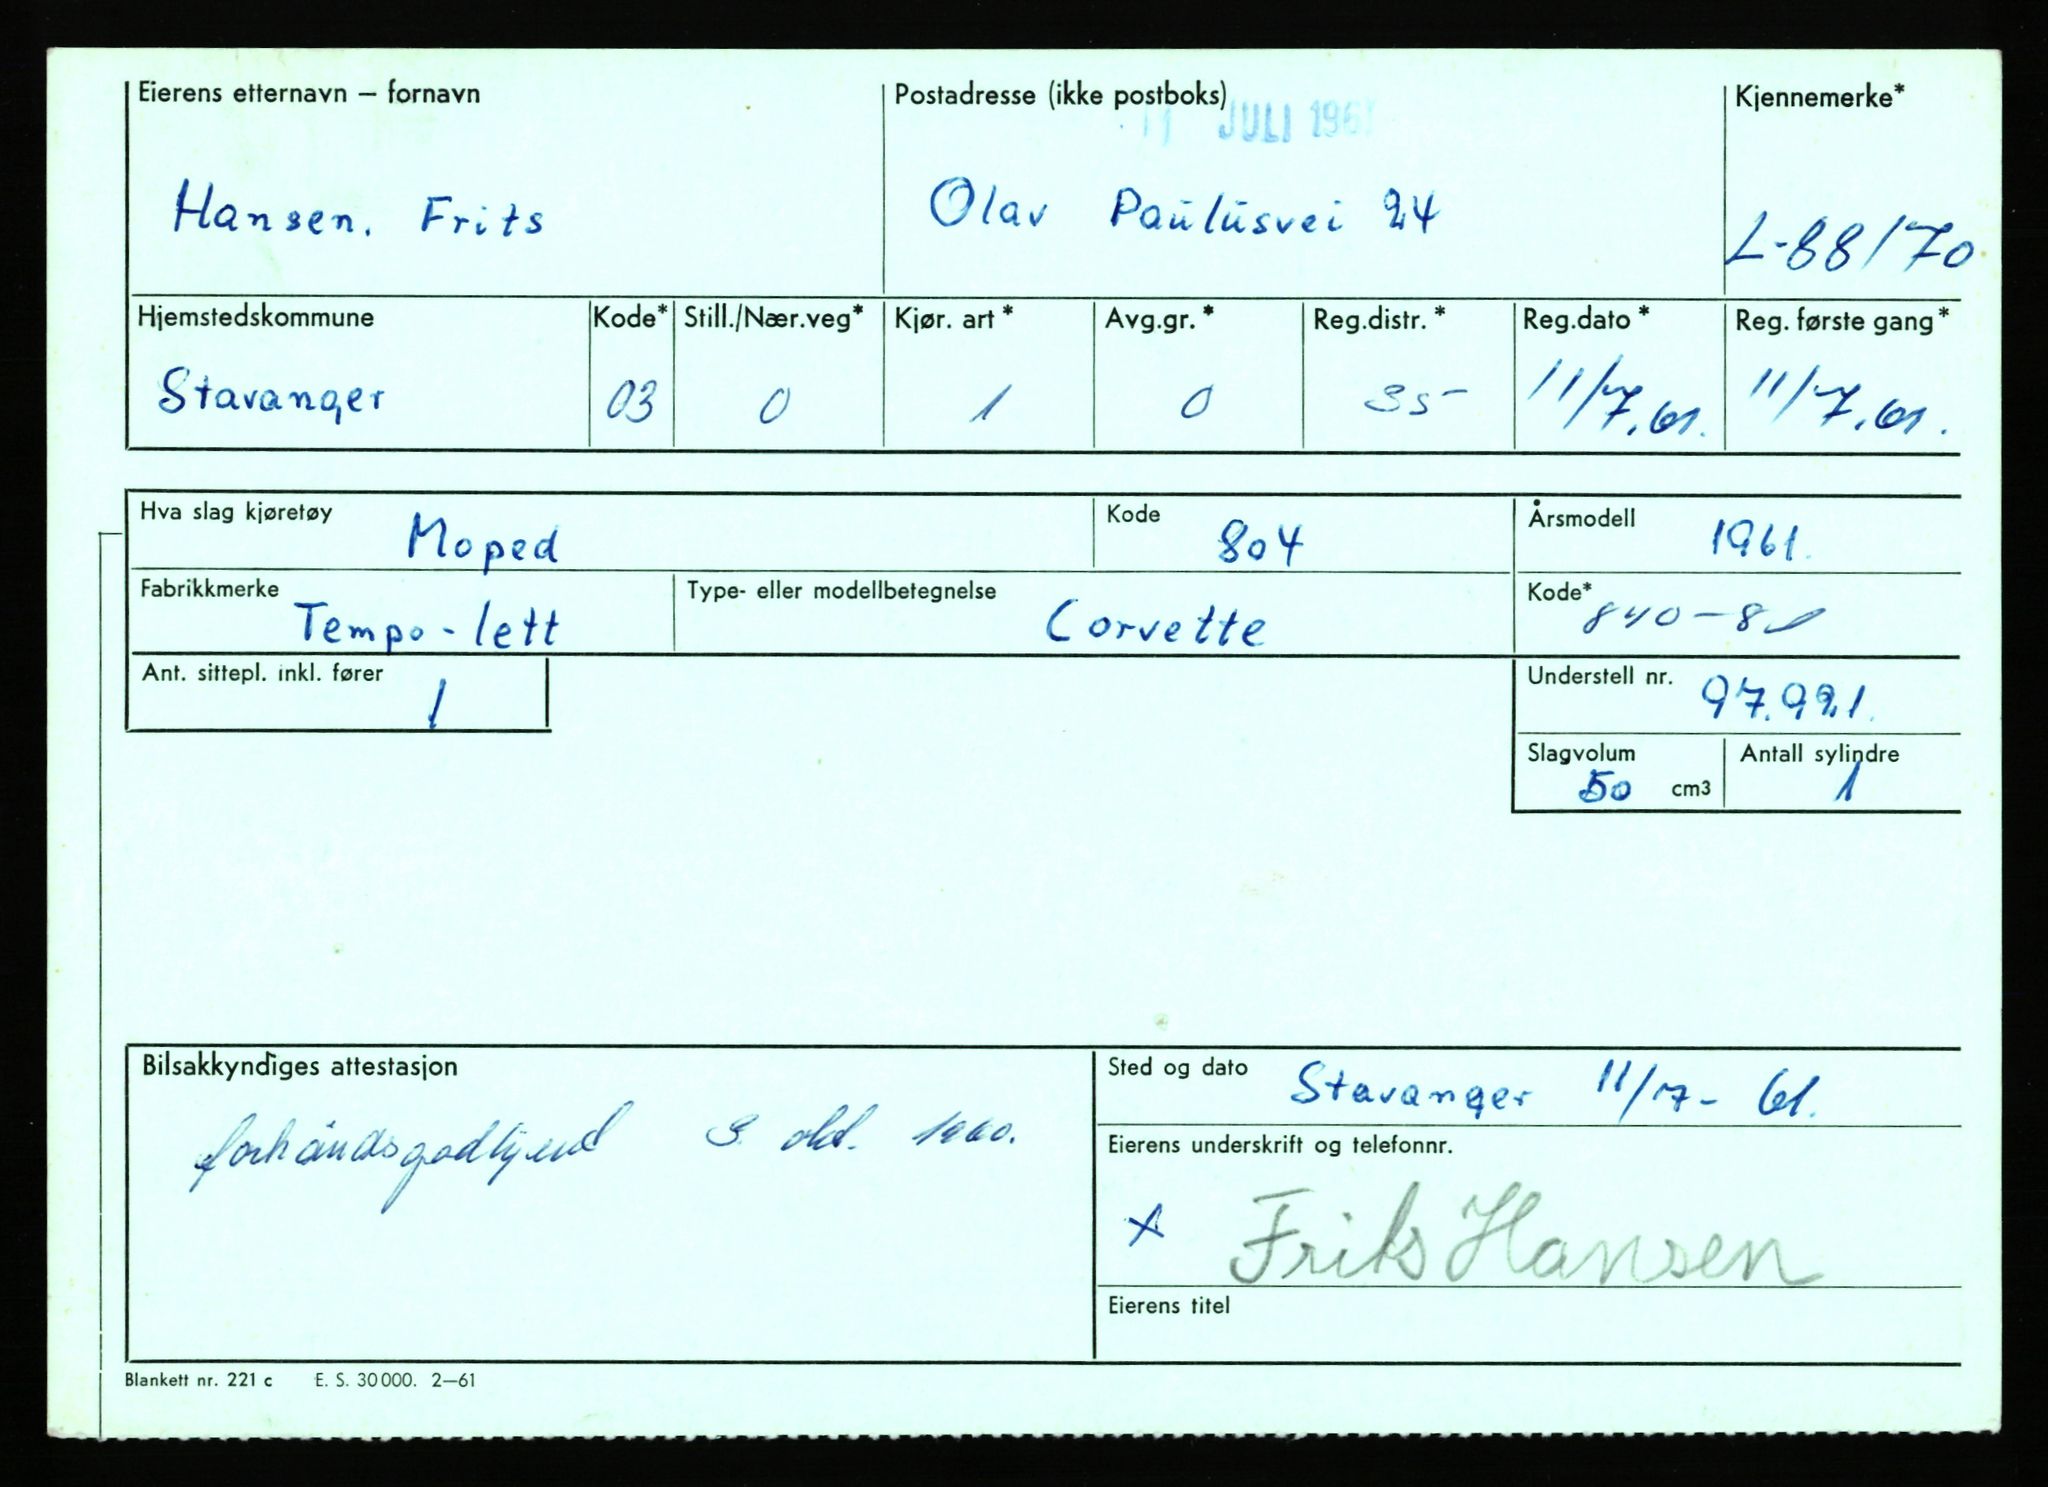 Eierens etternavn – fornavn
Postadresse (ikke postboks)
Kjennemerke*
11 JULI 1961
Hansen, Frits
Olav Paulusvei 24
L-88170
Hjemstedskommune
Kode*
Still./Nær.veg*
Kjør. art *
Avg.gr. *
Reg.distr. *
Reg.dato *
Reg. første gang*
Stavanger
03
0
1
0
35-
11/7.61.
11/7.61.
Hva slag kjøretøy
Moped
Kode
804
Årsmodell
1961.
Fabrikkmerke
Tempo-lett
Type- eller modellbetegnelse
Corvette
Kode*
840-81
Ant. sittepl. inkl. fører
1
Understell nr.
97.921.
Slagvolum
50 cm3
Antall sylindre
1
Bilsakkyndiges attestasjon
forhåndsgodkjend 3. okt. 1960.
Sted og dato
Stavanger 11/7- 61.
Eierens underskrift og telefonnr.
x Frits Hansen
Eierens titel
Blankett nr. 221 c E. S. 30000. 2–61